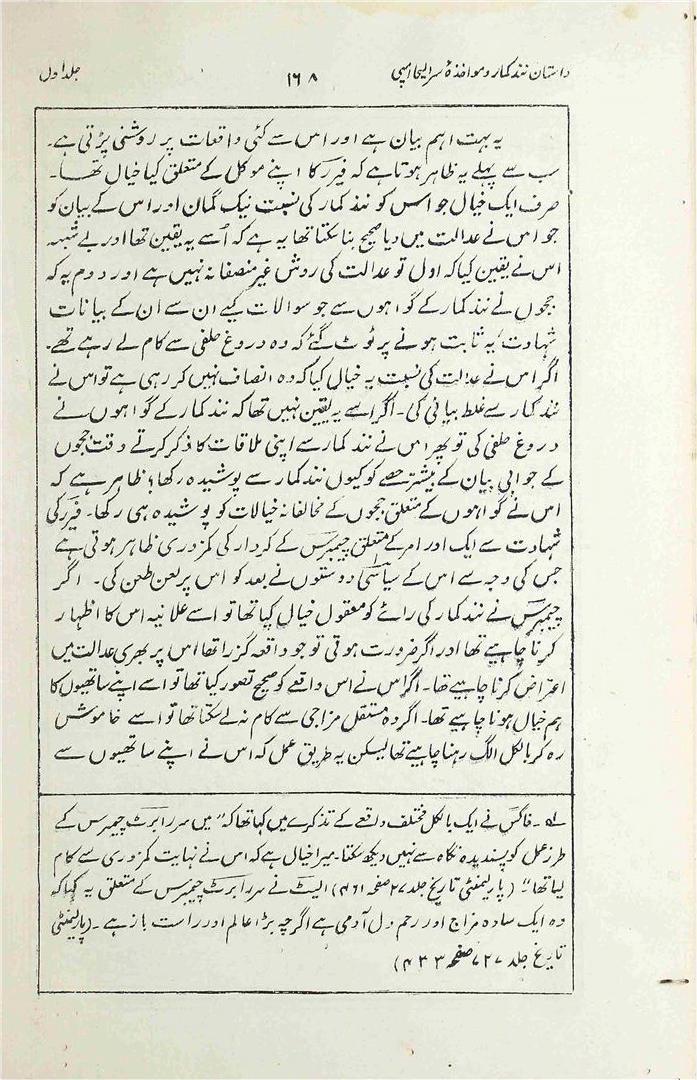 داستان نند کمار و مواخذۂ سر ایلیجا امپی
۱۶۸
جلد اول
یہ بہت اہم بیان ہے اور اس سے کئی واقعات پر روشنی پڑتی ہے۔
سب سے پہلے یہ ظاہر ہوتا ہے کہ فیرر کا اپنے موکل کے متعلق کیا خیال تھا۔
صرف ایک خیال جو اس کو نند کمار کی نسبت نیک گمان اور اس کے بیان کو
جو اس نے عدالت میں دیا صحیح بنا سکتا تھا یہ ہے کہ اُسے یہ یقین تھا اور بے شبہ
اس نے یقین کیا کہ اول تو عدالت کی روش غیر منصفانہ نہیں ہے اور دوم یہ کہ
ججوں نے نند کمار کے گواہوں سے جو سوالات کیے ان سے ان کے بیانات
شہادت یہ ثابت ہونے پر ٹوٹ گئے کہ وہ دروغ حلفی سے کام لے رہے تھے۔
اگر اس نے عدالت کی نسبت یہ خیال کیا کہ وہ انصاف نہیں کر رہی ہے تو اس نے
نند کمار سے غلط بیانی کی۔ اگر اسے یہ یقین نہیں تھا کہ نند کمار کے گواہوں نے
دروغ حلفی کی تو پھر اس نے نند کمار سے اپنی ملاقات کا ذکر کرتے وقت ججوں
کے جوابی بیان کے بیشتر حصے کو کیوں نند کمار سے پوشیدہ رکھا؛ ظاہر ہے کہ
اس نے گواہوں کے متعلق ججوں کے مخالفانہ خیالات کو پوشیدہ ہی رکھا۔ فیرر کی
شہادت سے ایک اور امر کے متعلق چیمبرس کے کردار کی کمزوری ظاہر ہوتی ہے
جس کی وجہ سے اس کے سیاسی دوستوں نے بعد کو اس پر لعن طعن کی۔ اگر
چیمبرس نے نند کمار کی رائے کو معقول خیال کیا تھا تو اسے علانیہ اس کا اظہار
کرنا چاہیے تھا اور اگر ضرورت ہوتی تو جو واقعہ گزرا تھا اس پر بھری عدالت میں
اعتراض کرنا چاہیے تھا۔ اگر اس نے اس واقعے کو صحیح تصور کیا تھا تو اسے اپنے ساتھیوں کا
ہم خیال ہونا چاہیے تھا۔ اگر وہ مستقل مزاجی سے کام نہ لے سکتا تھا تو اسے خاموش
رہ کر بالکل الگ رہنا چاہیے تھا لیکن یہ طریق عمل کہ اس نے اپنے ساتھیوں سے
لہ۔ فاکس نے ایک بالکل مختلف واقعے کے تذکرے میں کہا تھا کہ ”میں سر رابرٹ چیمبرس کے
طرز عمل کو پسندیدہ نگاہ سے نہیں دیکھ سکتا۔ میرا خیال ہے کہ اس نے نہایت کمزوری سے کام
لیا تھا“ (پارلیمنٹی تاریخ جلد ۲۷ صفحہ ۴۶۱) الیٹ نے سر رابرٹ چیمبرس کے متعلق یہ کہا کہ
وہ ایک سادہ مزاج اور رحم دل آدمی ہے اگرچہ بڑا عالم اور راست باز ہے۔ (پارلیمنٹی
تاریخ جلد ۲۷ صفحہ ۴۳۳)